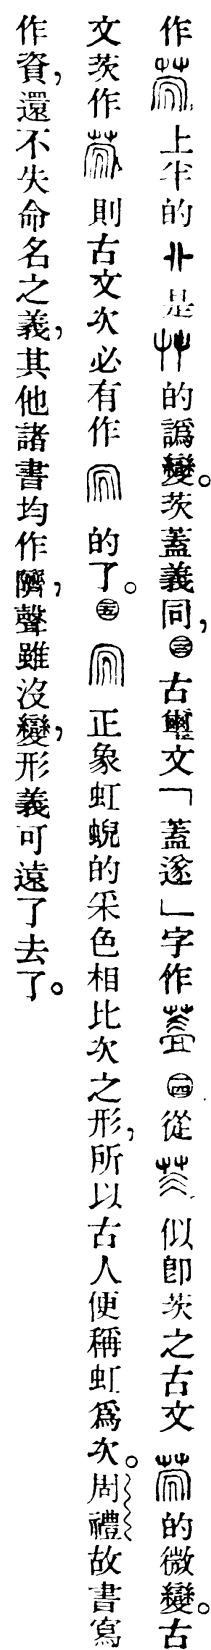 作上半的是艸的譌變。茨蓋義同，㊂古璽文「蓋遂」字作㊃從似卽茨之古文的微變。古
文茨作則古文次必有作的了。㊄正象虹蜺的采色相比次之形，所以古人便稱虹爲次。周禮故書寫
作資，還不失命名之義，其他諸書均作隮，聲雖沒變，形義可遠了去了。